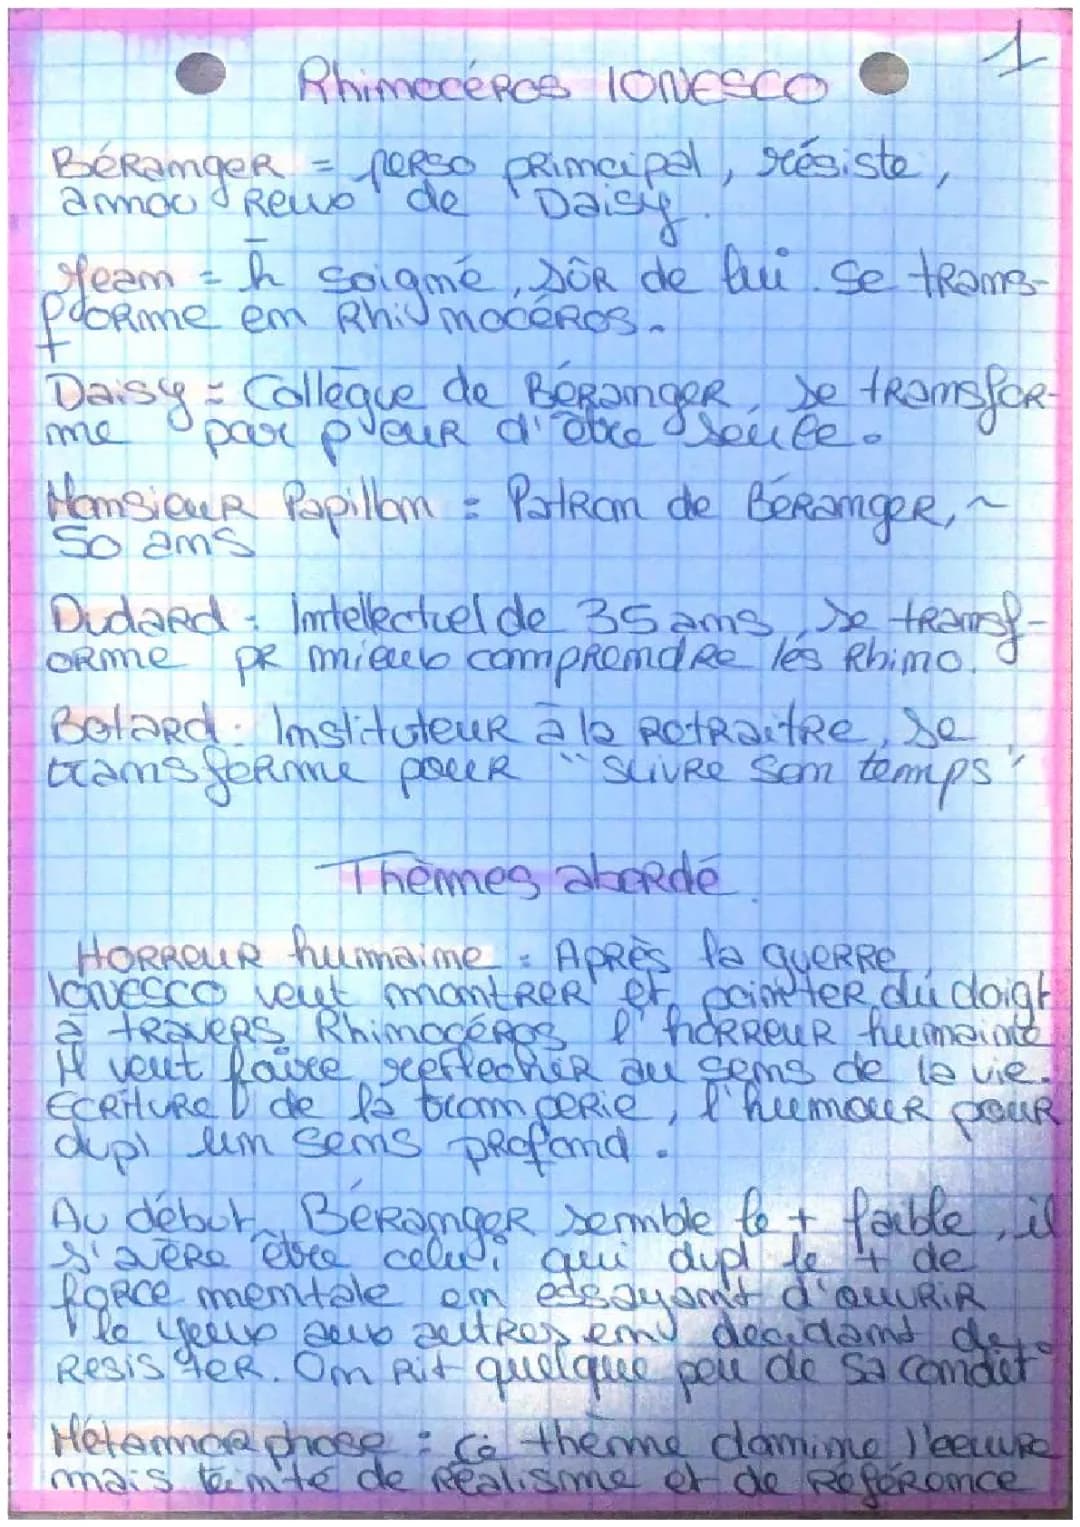 1
Rhinocéros IONESCO
Béranger = perso principal, résiste,
amoureux de Daisy.
Jean = h soigné, sûr de lui. Se trans-
forme en Rhinocéros.
Daisy = Collègue de Béranger, se transfor-
me par peur d'être seule.
Monsieur Papillon = Patron de Béranger, ~
50 ans
Dudard = Intellectuel de 35 ans, se transf-
orme pr mieux comprendre les Rhino.
Botard = Instituteur à la retraitre, se
transforme pour "suivre son temps"
Thèmes abordé
Horreur humaine = Après la guerre
Ionesco veut montrer et pointer du doigt
à travers Rhinocéros l'horreur humaine
Il veut faire reflechir au sens de la vie.
Ecriture de la tromperie, l'humour pour
dvpl un sens profond.
Au début, Béranger semble le + faible, il
s'avère être celui qui dvpl le + de
force mentale en essayant d'ouvrir
le yeux aux autres en decidant de
resister. On rit quelque peu de sa condit°
Métamorphose : Ce thème domine l'oeuvre
mais teinté de réalisme et de référence